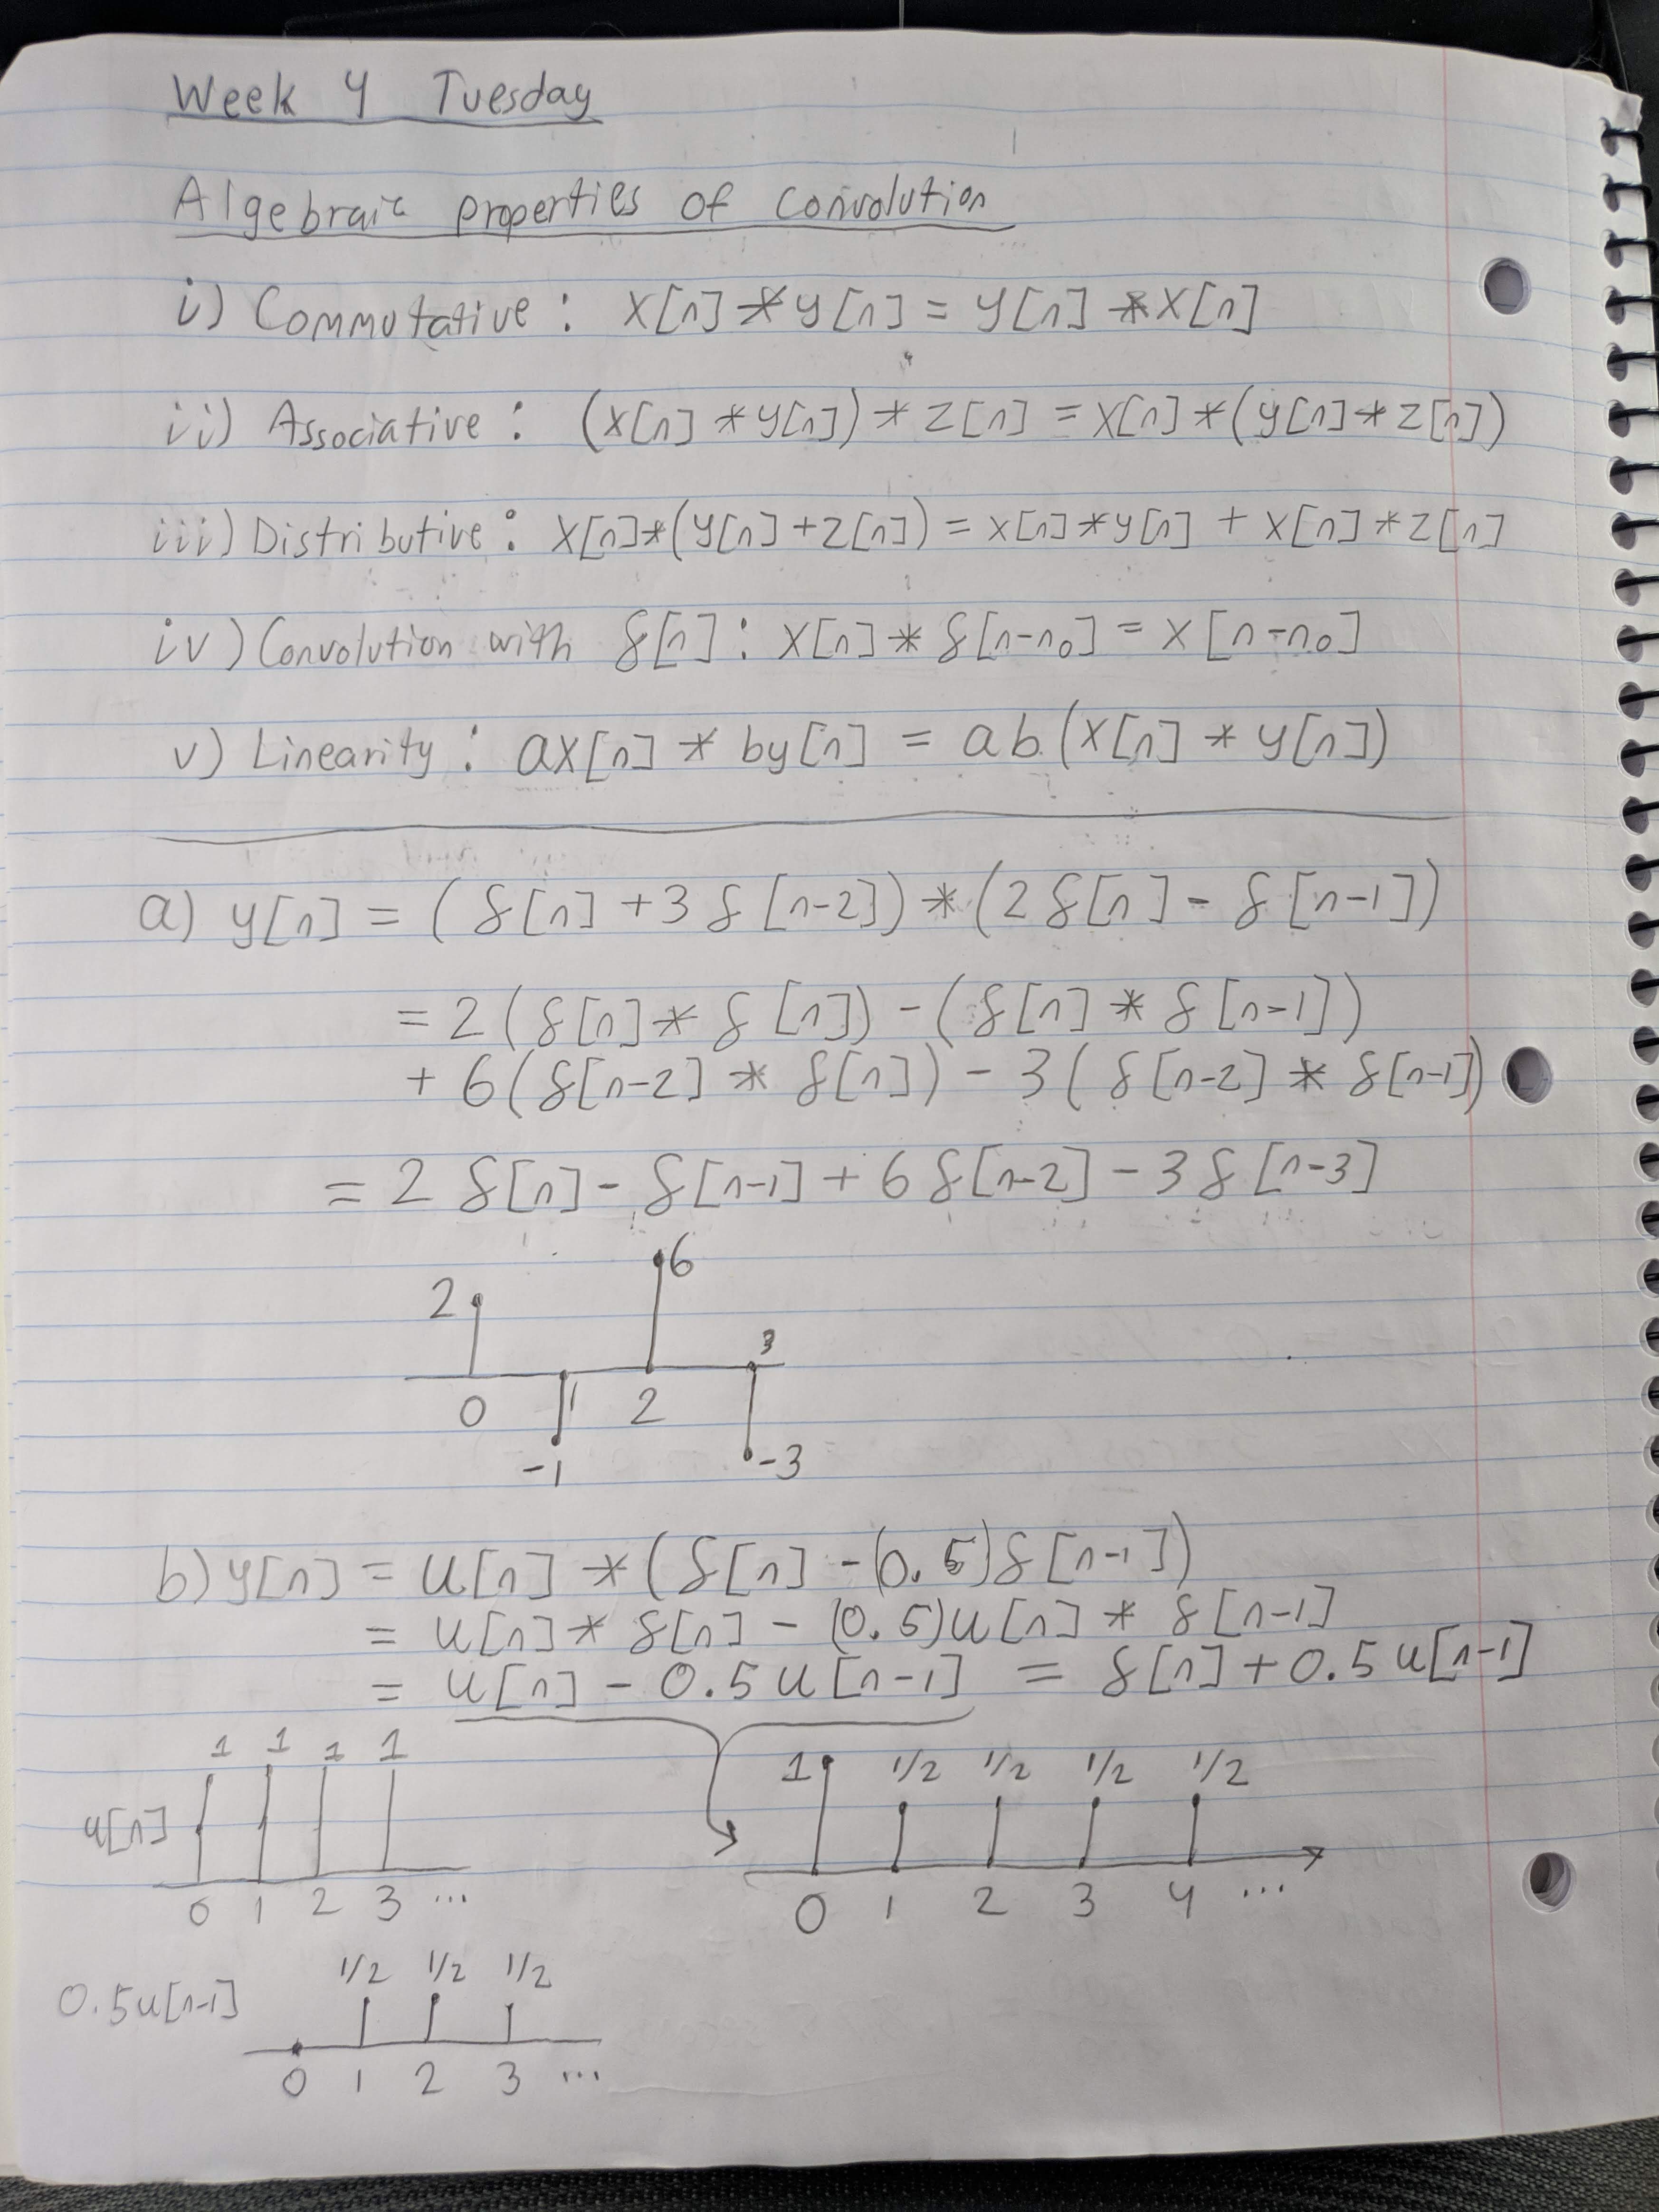 Week 4 Tuesday
Algebraic properties of Convolution
i) Commutative: x[n] * y[n] = y[n] * x[n]
ii) Associative: (x[n] * y[n]) * z[n] = x[n] * (y[n] * z[n])
iii) Distributive: x[n] * (y[n] + z[n]) = x[n] * y[n] + x[n] * z[n]
iv) Convolution with δ[n]: x[n] * δ[n-n₀] = x[n-n₀]
v) Linearity: ax[n] * by[n] = ab(x[n] * y[n])
a) y[n] = (δ[n] + 3δ[n-2]) * (2δ[n] - δ[n-1])
= 2(δ[n] * δ[n]) - (δ[n] * δ[n-1])
+ 6(δ[n-2] * δ[n]) - 3(δ[n-2] * δ[n-1])
= 2δ[n] - δ[n-1] + 6δ[n-2] - 3δ[n-3]
6
2
3
0 1 2
-1 -3
b) y[n] = u[n] * (δ[n] - (0.5)δ[n-1])
= u[n] * δ[n] - (0.5)u[n] * δ[n-1]
= u[n] - 0.5u[n-1] = δ[n] + 0.5u[n-1]
1 1 1 1
u[n]
0 1 2 3 ...
1 1/2 1/2 1/2 1/2
0 1 2 3 4 ...
1/2 1/2 1/2
0.5u[n-1]
0 1 2 3 ...